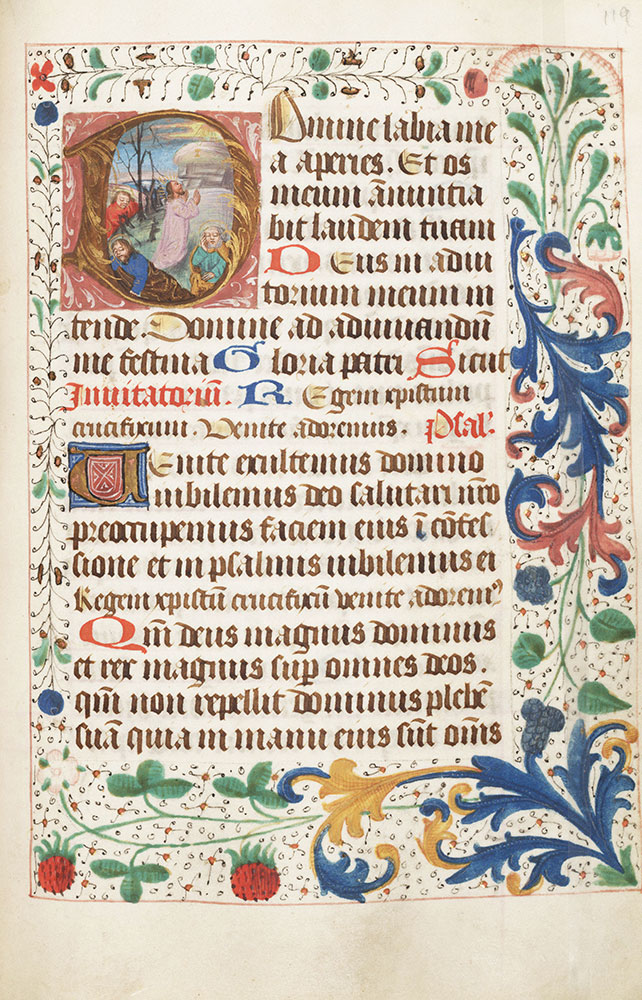 119
Domine labia me
a aperies. Et os
meum ānuntia
bit laudem tuam
Deus in adiu
torium meum in
tende. Domine ad adiuuandū
me festina Gloria patri Sicut
Inuitatoriū. Regem xpistum
crucifixum. Venite adoremus. Psal'
Uenite exultemus domino
iubilemus deo salutari nr̄o
preoccupemus faciem eius ī cōfes
sione et in psalmis iubilemus ei
Regem xpistū crucifixū venite adorem⁹
Qm̄ deus magnus dominus
et rex magnus sup̄ omnes deos.
qm̄ non repellit dominus plebē
suā quia in manu eius sūt om̄s